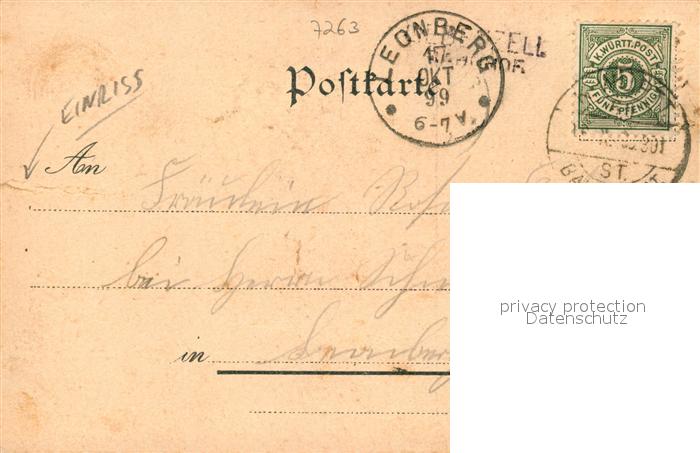 7263
EINRISS
Postkarte
LEONBERG
17
OKT
99
6-7 V.
ELL
K. WÜRTT. POST
5
FÜNF PFENNIG
ST.
An Fräulein Rosa
bei Herrn
in Leonberg
privacy protection
Datenschutz